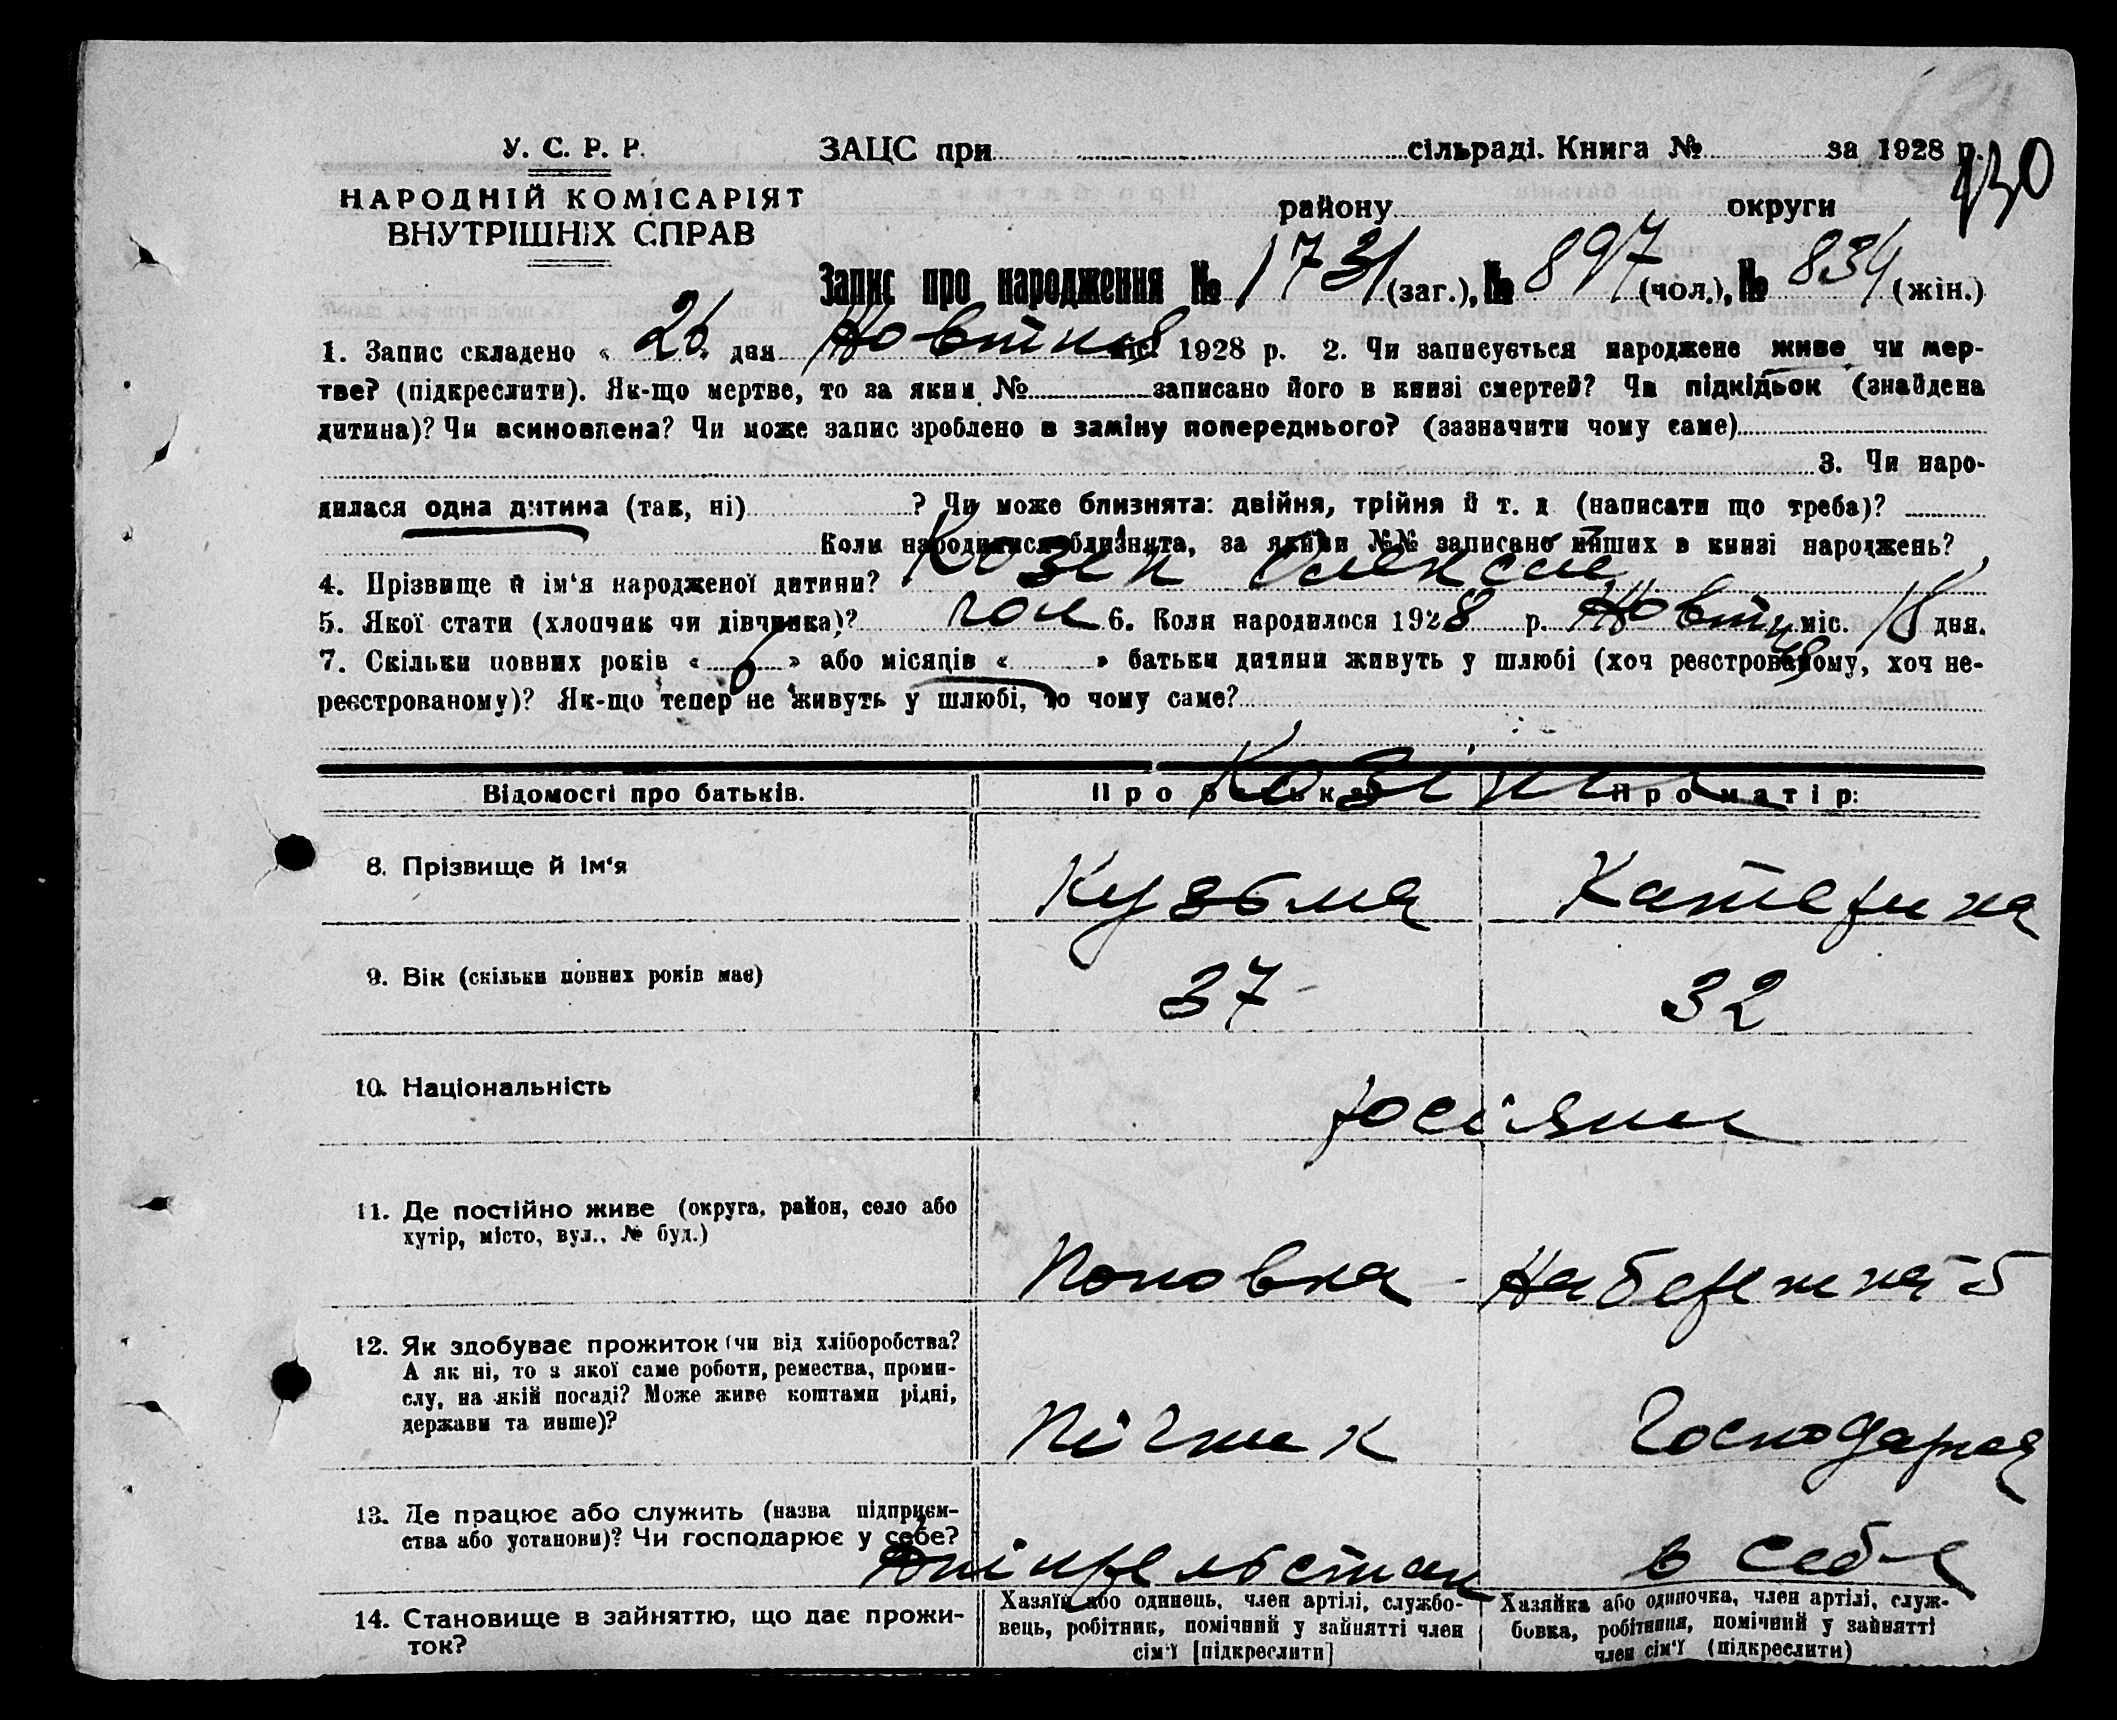 У. С. Р. Р.
НАРОДНІЙ КОМІСАРІЯТ
ВНУТРІШНІХ СПРАВ
ЗАЦС при сільраді. Книга № за 1928 р.
430
району округи
Запис про народження № 1731 (заг.), № 897 (чол.), № 834 (жін.)
1. Запис складено « 26 » дня Жовтня міс. 1928 р. 2. Чи записується народжене живе чи мер-
тве? (підкреслити). Як-що мертве, то за яким № записано його в книзі смертей? Чи підкідьок (знайдена
дитина)? Чи всиновлена? Чи може запис зроблено в заміну попереднього? (зазначити чому саме)
3. Чи наро-
дилася одна дитина (так, ні) ? Чи може близнята: двійня, трійня й т. д (написати що треба)?
Коли народилися близнята, за якими №№ записано инших в книзі народжень?
4. Прізвище й ім‘я народженої дитини? Козін Олексій
5. Якої стати (хлопчик чи дівчинка)? чол 6. Коли народилося 1928 р. Жовтня міс. 18 дня.
7. Скільки повних років « 6 » або місяців « » батьки дитини живуть у шлюбі (хоч реєстрованому, хоч не-
реєстрованому)? Як-що тепер не живуть у шлюбі, то чому саме?
Відомості про батьків. Про батька: Про матір:
Козіни
8. Прізвище й ім‘я Кузьма Катерина
9. Вік (скільки повних років має) 37 32
10. Національність росіяни
11. Де постійно живе (округа, район, село або
хутір, місто, вул., № буд.)
Поповка - Набережна 5
12. Як здобуває прожиток (чи від хліборобства?
А як ні, то з якої саме роботи, ремества, проми-
слу, на якій посаді? Може живе коштами рідні,
держави та инше)?
Пічник Господарка
13. Де працює або служить (назва підприєм-
ства або установи)? Чи господарює у себе?
в себе
14. Становище в зайняттю, що дає прожи-
ток?
Хазяїн або одинець, член артілі, службо-
вець, робітник, помічний у зайнятті член
сім‘ї [підкреслити]
Хазяйка або одиночка, член артілі, служ-
бовка, робітниця, помічний у зайнятті
член сім‘ї (підкреслити)